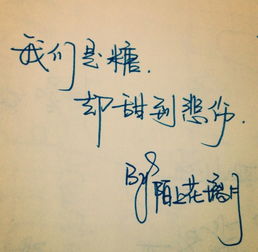 我们是糖.
却甜到悲伤.
By 陌上花瑙月